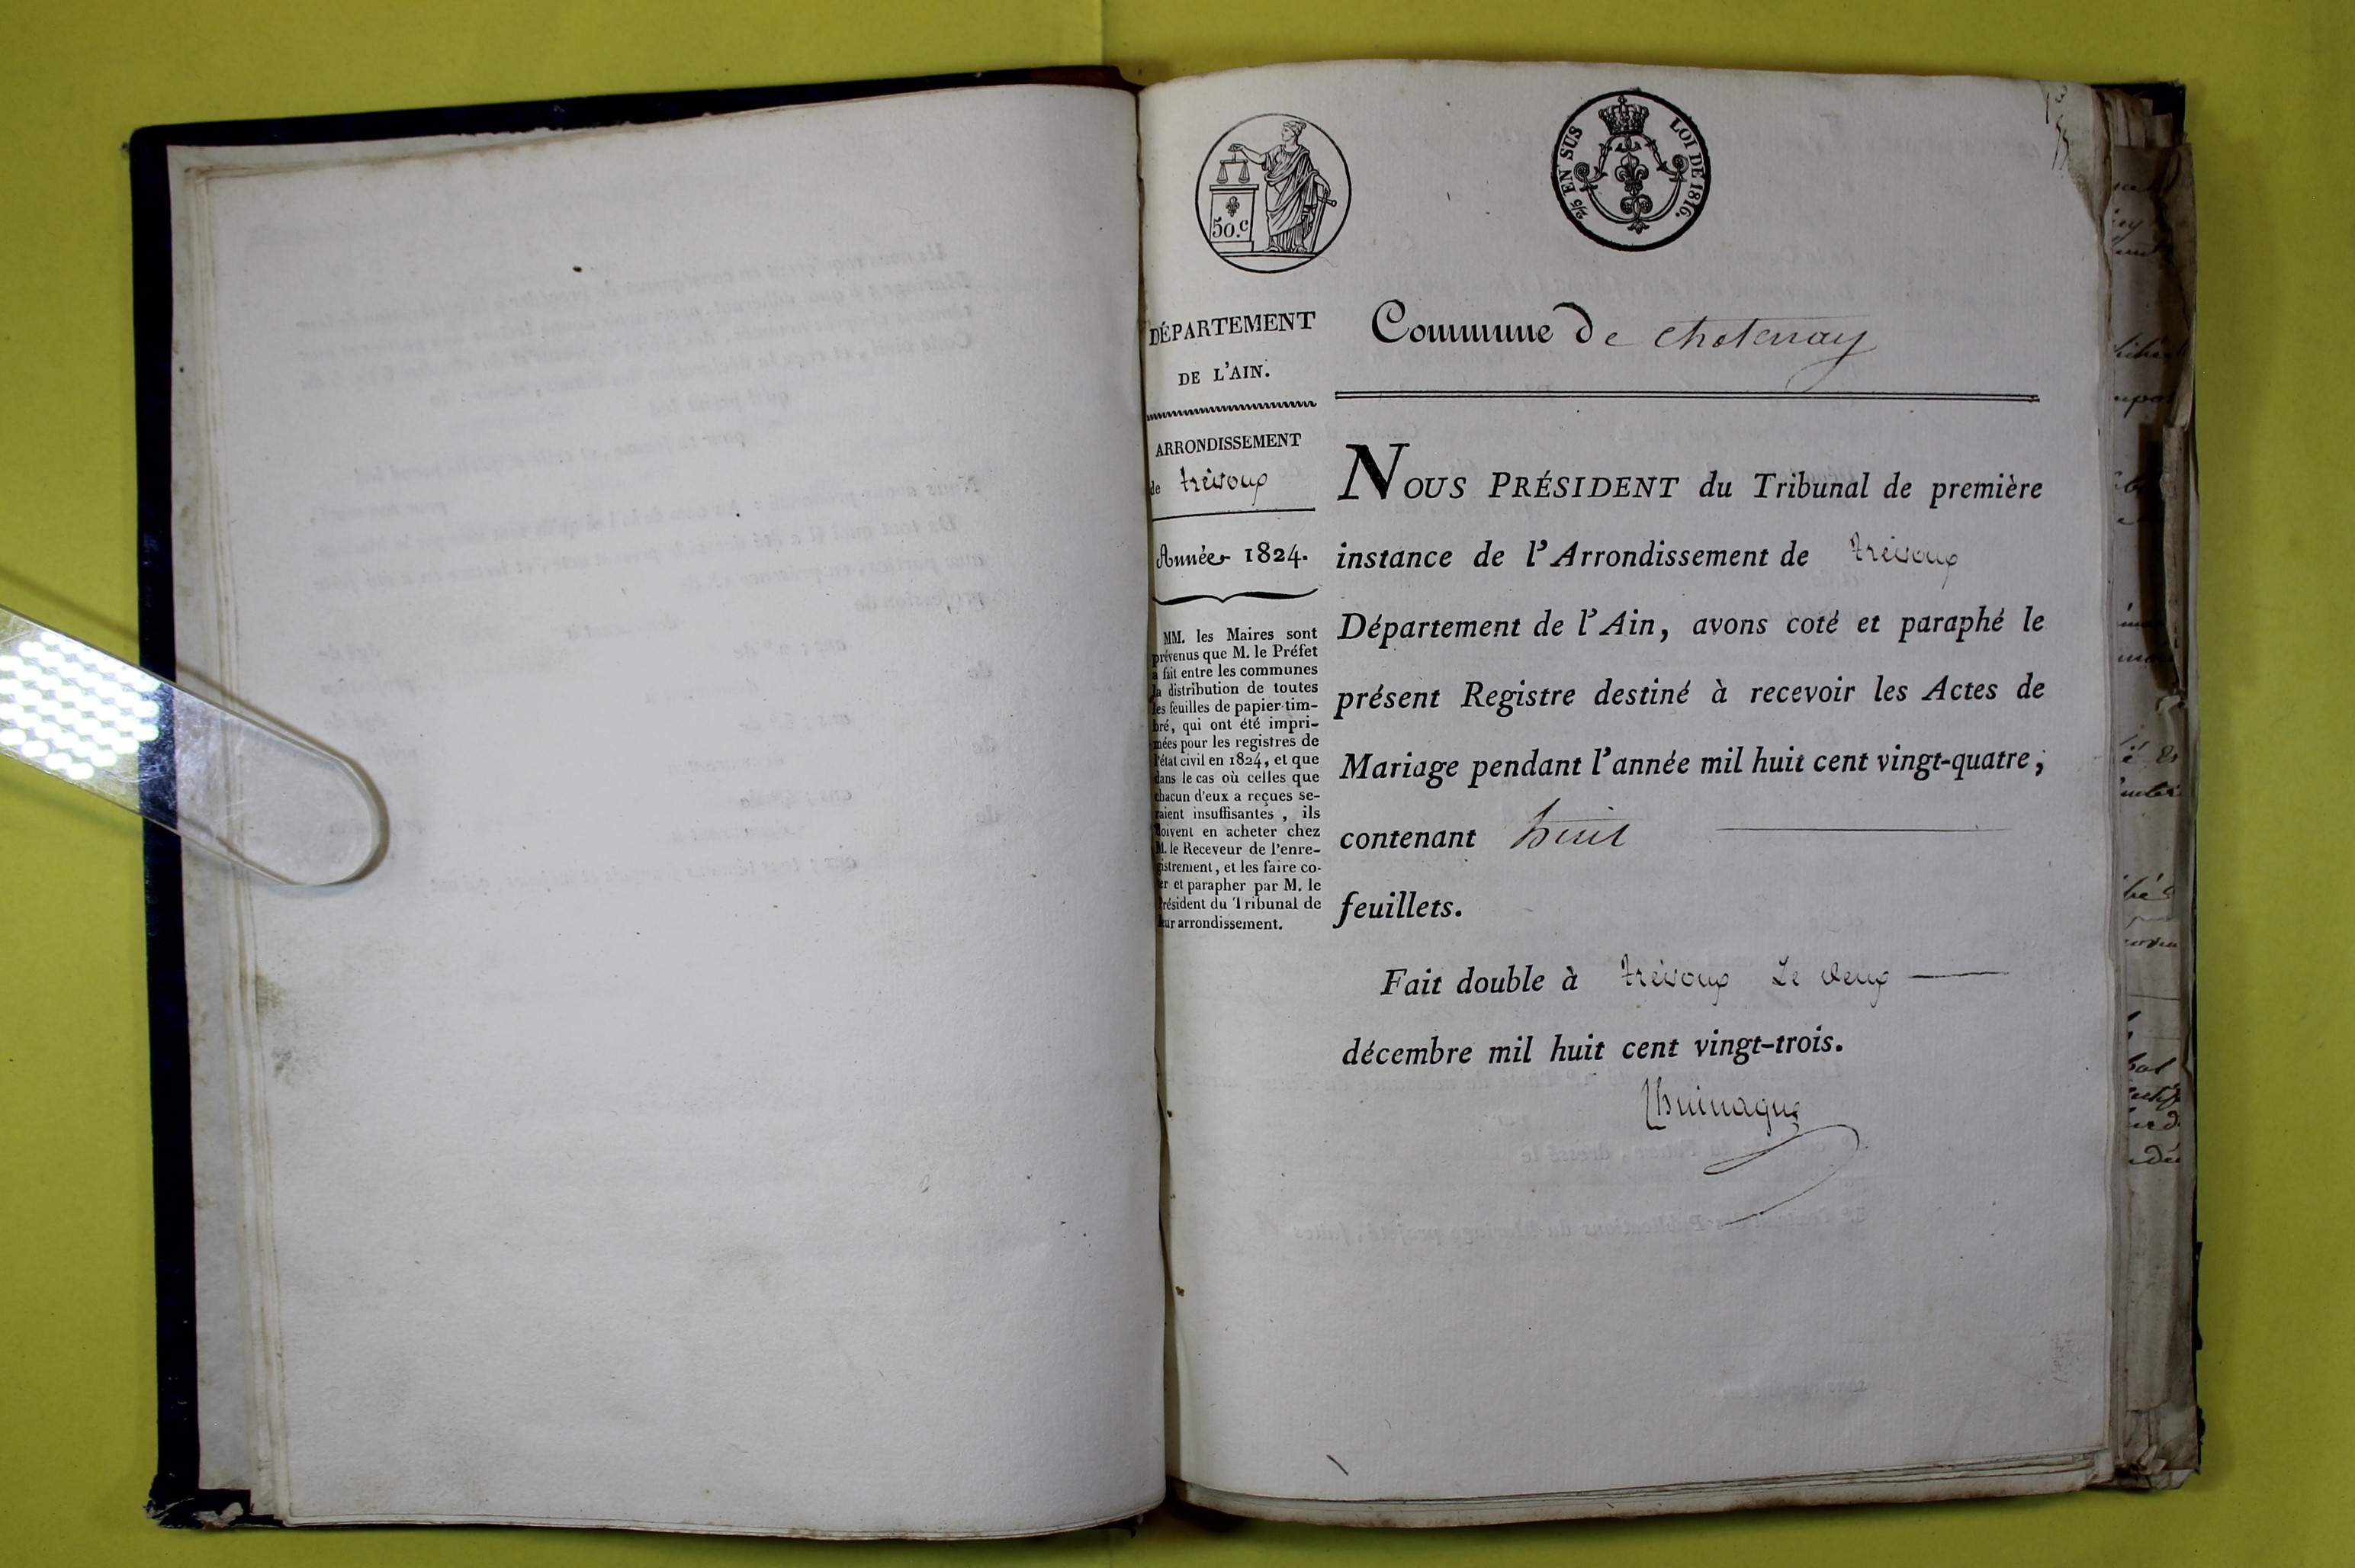 50.c
2/5 EN SUS LOI DE 1816.
DÉPARTEMENT
DE L'AIN.
ARRONDISSEMENT
de trévoux
Année 1824.
MM. les Maires sont
prévenus que M. le Préfet
a fait entre les communes
la distribution de toutes
les feuilles de papier tim-
bré, qui ont été impri-
mées pour les registres de
l'état civil en 1824, et que
dans le cas où celles que
chacun d'eux a reçues se-
raient insuffisantes, ils
doivent en acheter chez
M. le Receveur de l'enre-
gistrement, et les faire co-
ter et parapher par M. le
Président du Tribunal de
leur arrondissement.
Commune de chatenay
NOUS PRÉSIDENT du Tribunal de première
instance de l'Arrondissement de trévoux
Département de l'Ain, avons coté et paraphé le
présent Registre destiné à recevoir les Actes de
Mariage pendant l'année mil huit cent vingt-quatre;
contenant huit
feuillets.
Fait double à trévoux Le deux
décembre mil huit cent vingt-trois.